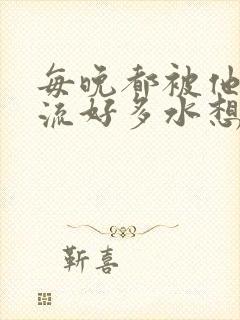 每晚都被他
流好多水想
靳喜